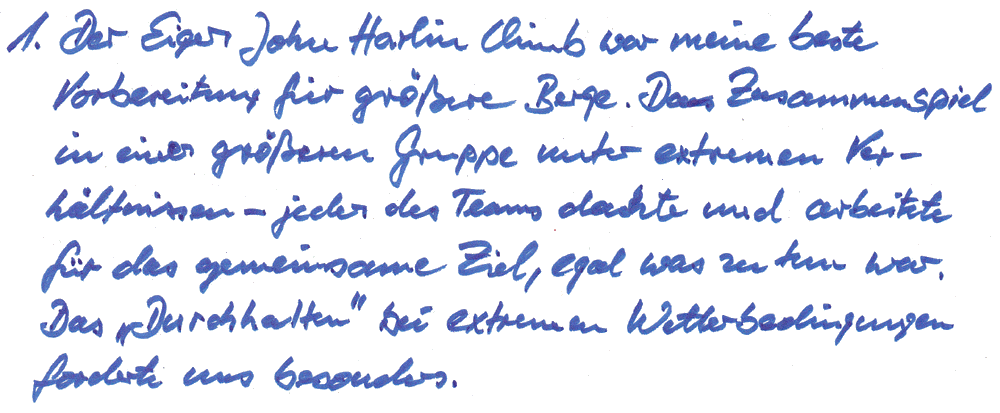 1. Der Eiger John Harlin Climb war meine beste
Vorbereitung für größere Berge. Das Zusammenspiel
in einer größeren Gruppe unter extremen Ver-
hältnissen – jeder des Teams dachte und arbeitete
für das gemeinsame Ziel, egal was zu tun war.
Das „Durchhalten" bei extremen Wetterbedingungen
forderte uns besonders.